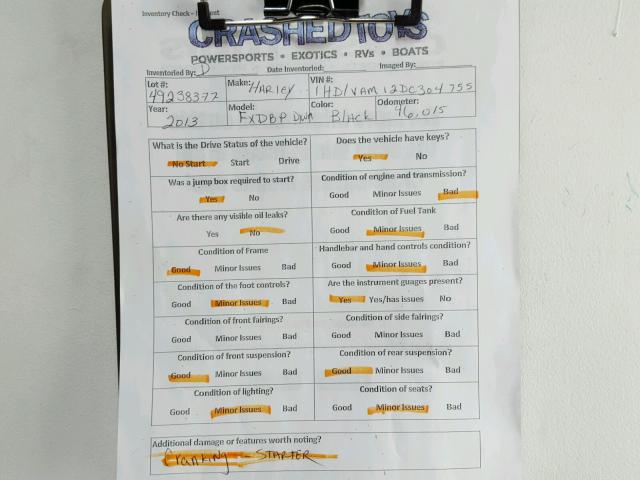 Inventory Check -
CRASHEDTOYS
POWERSPORTS • EXOTICS • RVs • BOATS
Inventoried By: D Date Inventoried: Imaged By:
Lot #: Make: HARLEY VIN #:
49238377 1HD1VAM12DC304755
Year: Model: Color: Odometer:
2013 FXDBP DWN Black 46,015
What is the Drive Status of the vehicle? Does the vehicle have keys?
No Start Start Drive Yes No
Was a jump box required to start? Condition of engine and transmission?
Yes No Good Minor Issues Bad
Are there any visible oil leaks? Condition of Fuel Tank
Yes No Good Minor Issues Bad
Condition of Frame Handlebar and hand controls condition?
Good Minor Issues Bad Good Minor Issues Bad
Condition of the foot controls? Are the instrument guages present?
Good Minor Issues Bad Yes Yes/has issues No
Condition of front fairings? Condition of side fairings?
Good Minor Issues Bad Good Minor Issues Bad
Condition of front suspension? Condition of rear suspension?
Good Minor Issues Bad Good Minor Issues Bad
Condition of lighting? Condition of seats?
Good Minor Issues Bad Good Minor Issues Bad
Additional damage or features worth noting?
Cranking - STARTER